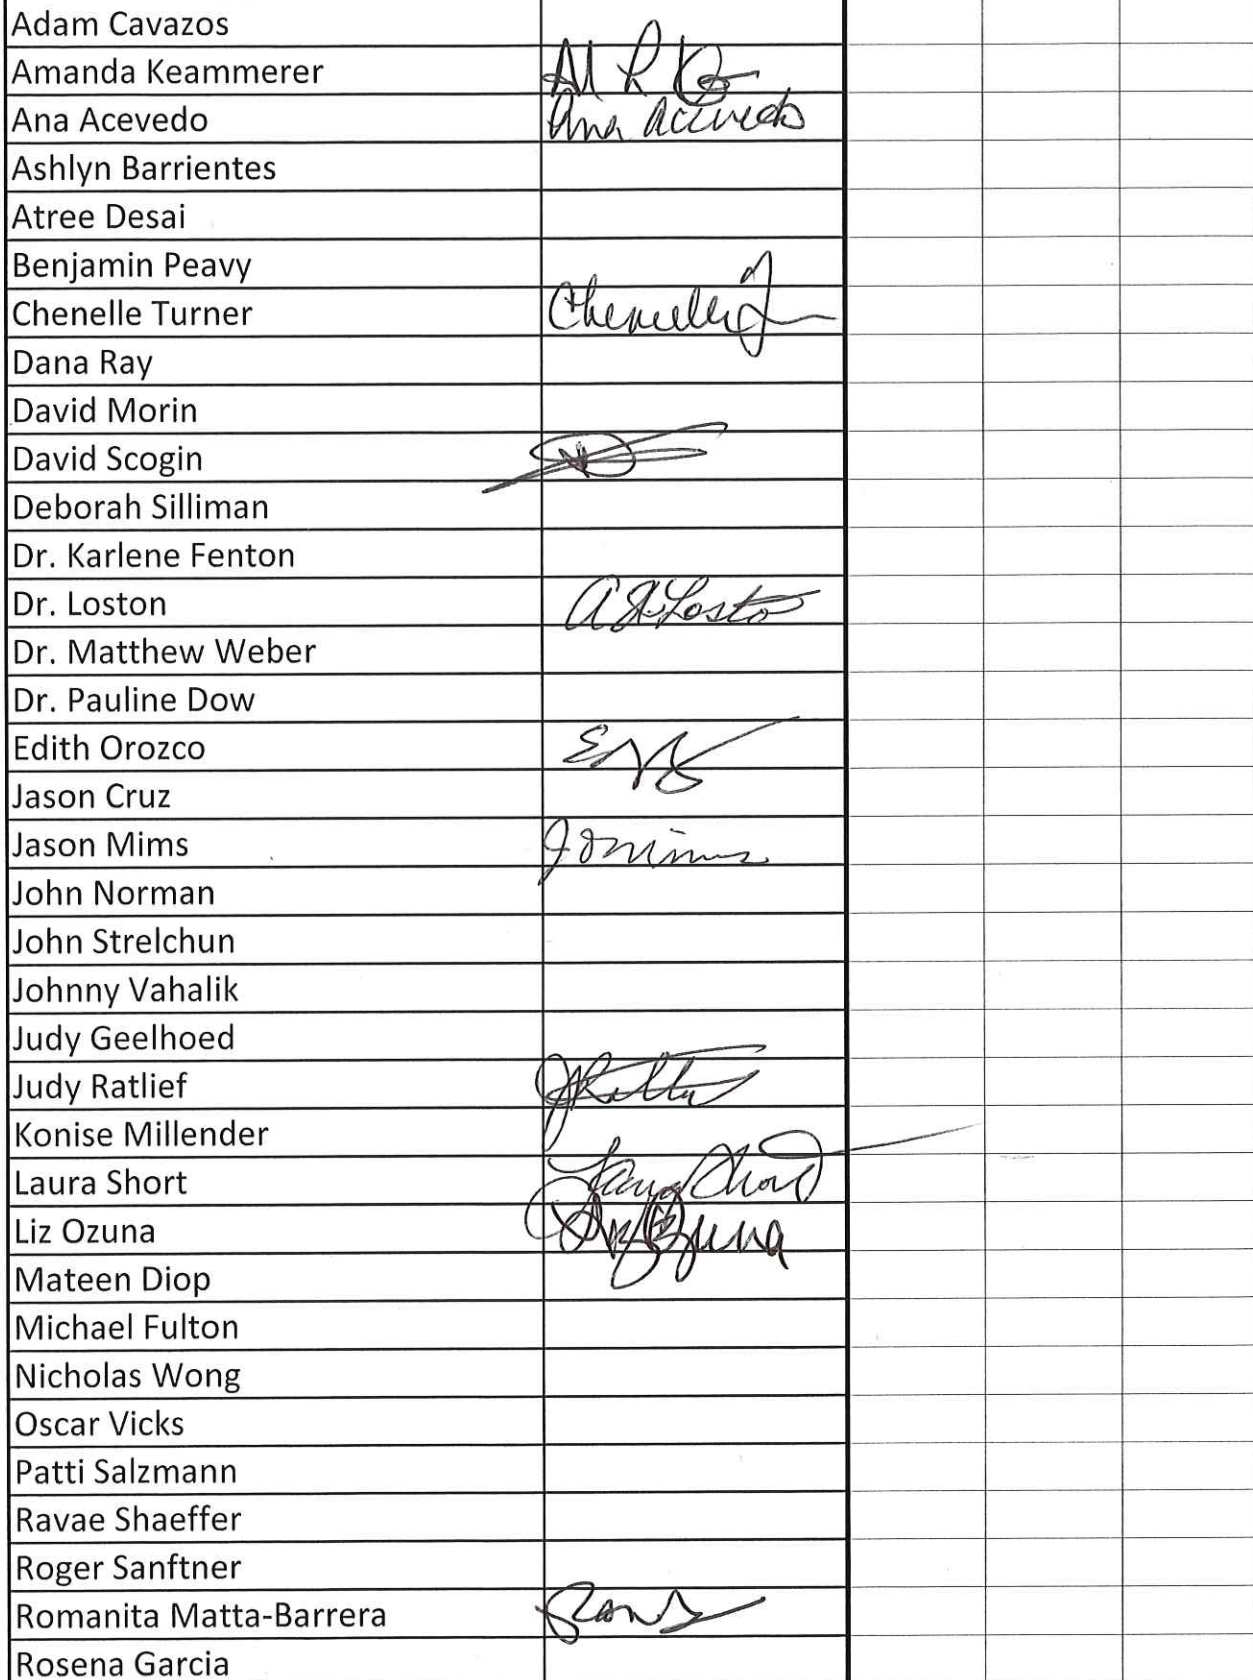 Adam Cavazos
Amanda Keammerer
Ana Acevedo Ana Acevedo
Ashlyn Barrientes
Atree Desai
Benjamin Peavy
Chenelle Turner Chenelle T
Dana Ray
David Morin
David Scogin
Deborah Silliman
Dr. Karlene Fenton
Dr. Loston
Dr. Matthew Weber
Dr. Pauline Dow
Edith Orozco
Jason Cruz
Jason Mims
John Norman
John Strelchun
Johnny Vahalik
Judy Geelhoed
Judy Ratlief
Konise Millender
Laura Short Laura Short
Liz Ozuna Liz Ozuna
Mateen Diop
Michael Fulton
Nicholas Wong
Oscar Vicks
Patti Salzmann
Ravae Shaeffer
Roger Sanftner
Romanita Matta-Barrera
Rosena Garcia